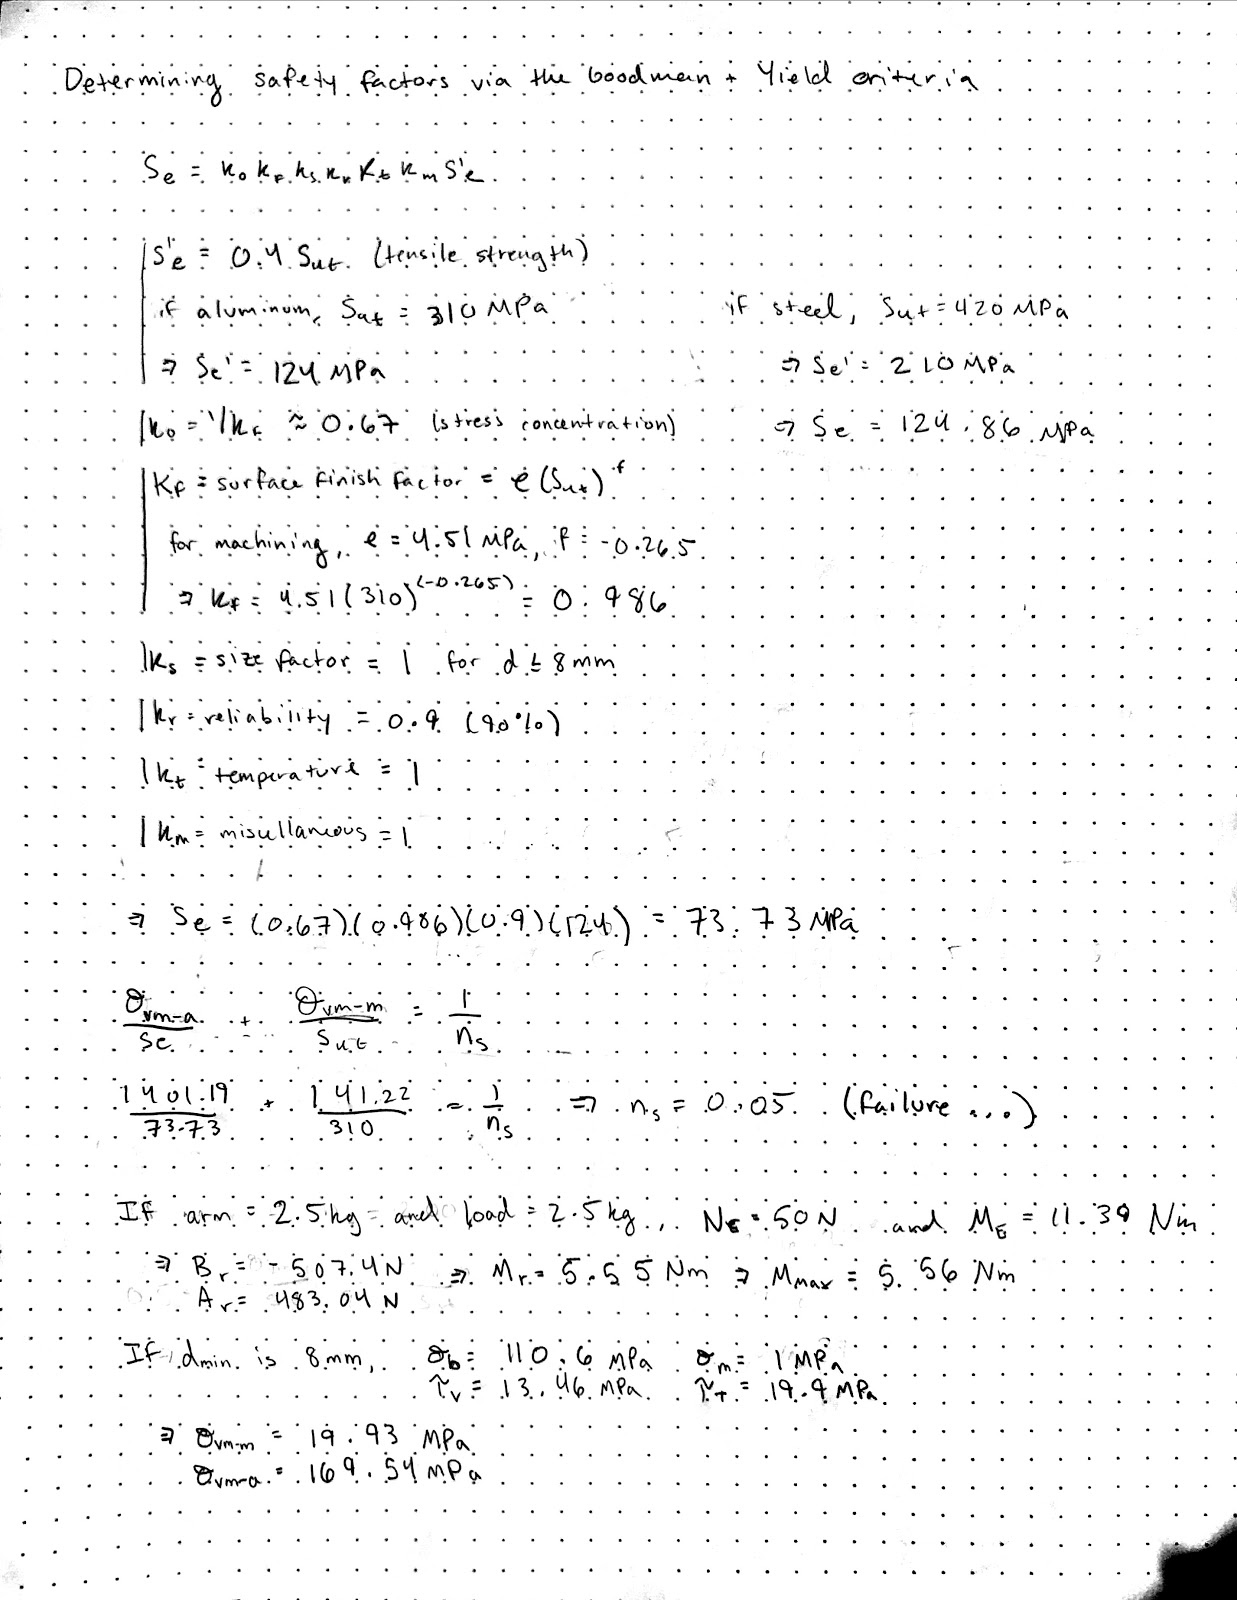 Determining safety factors via the Goodman + Yield criteria
Se = ko kf ks kr kt km S'e
S'e = 0.4 Sut (tensile strength)
if aluminum, Sut = 310 MPa if steel, Sut = 420 MPa
⇒ Se' = 124 MPa ⇒ Se' = 210 MPa
ko = 1/kf ≈ 0.67 (stress concentration) ⇒ Se = 124.86 MPa
Kf = surface finish factor = e (Sut)^f
for machining, e = 4.51 MPa, f = -0.265
⇒ kf = 4.51(310)^(-0.265) = 0.986
ks = size factor = 1 for d ≤ 8mm
kr = reliability = 0.9 (90%)
kt = temperature = 1
km = miscellaneous = 1
⇒ Se = (0.67)(0.986)(0.9)(124) = 73.73 MPa
σvm-a/Se + σvm-m/Sut = 1/ns
1401.19/73.73 + 141.22/310 = 1/ns ⇒ ns = 0.05 (failure...)
If arm = 2.5kg and load = 2.5kg, NE = 50N and ME = 11.39 Nm
⇒ Br = -507.4N ⇒ Mr = 5.55 Nm ⇒ Mmax = 5.56 Nm
Ar = 483.04 N
If dmin is 8mm, σb = 110.6 MPa σm = 1 MPa
τv = 13.46 MPa τT = 19.9 MPa
⇒ σvm-m = 19.93 MPa
σvm-a = 169.54 MPa